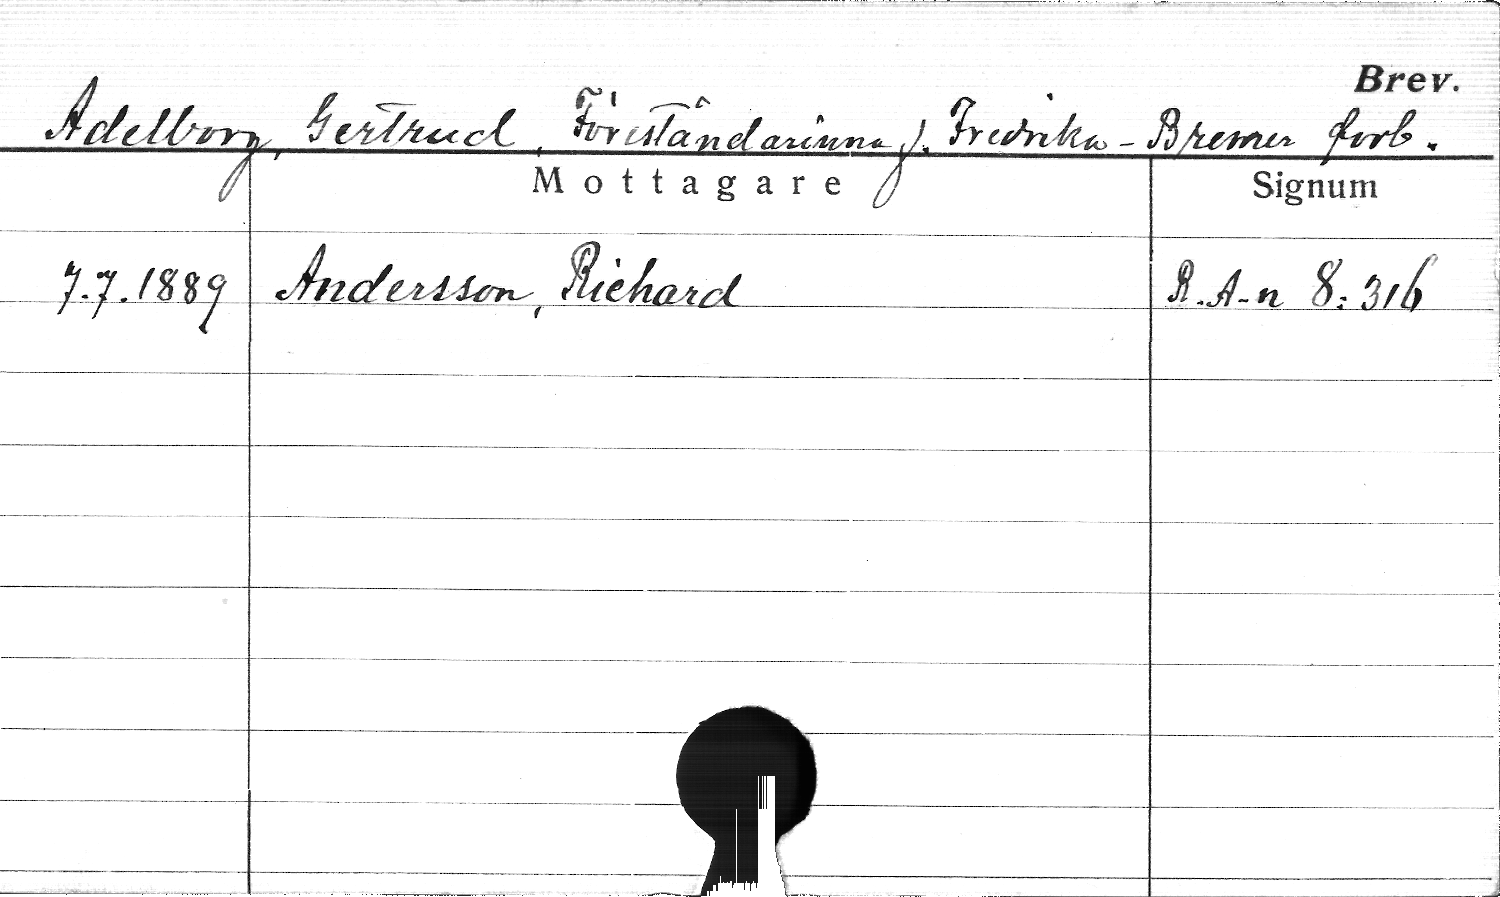 Brev.
Adelborg, Gertrud, Föreståndarinna f. Fredrika-Bremer förb.
Mottagare Signum
7.7.1889 Andersson, Richard R.A-n 8:316